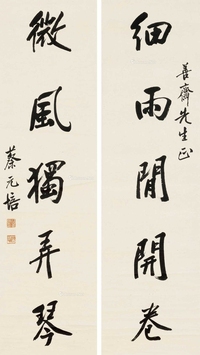 細雨閒開卷
善齋先生正
微風獨弄琴
蔡元培